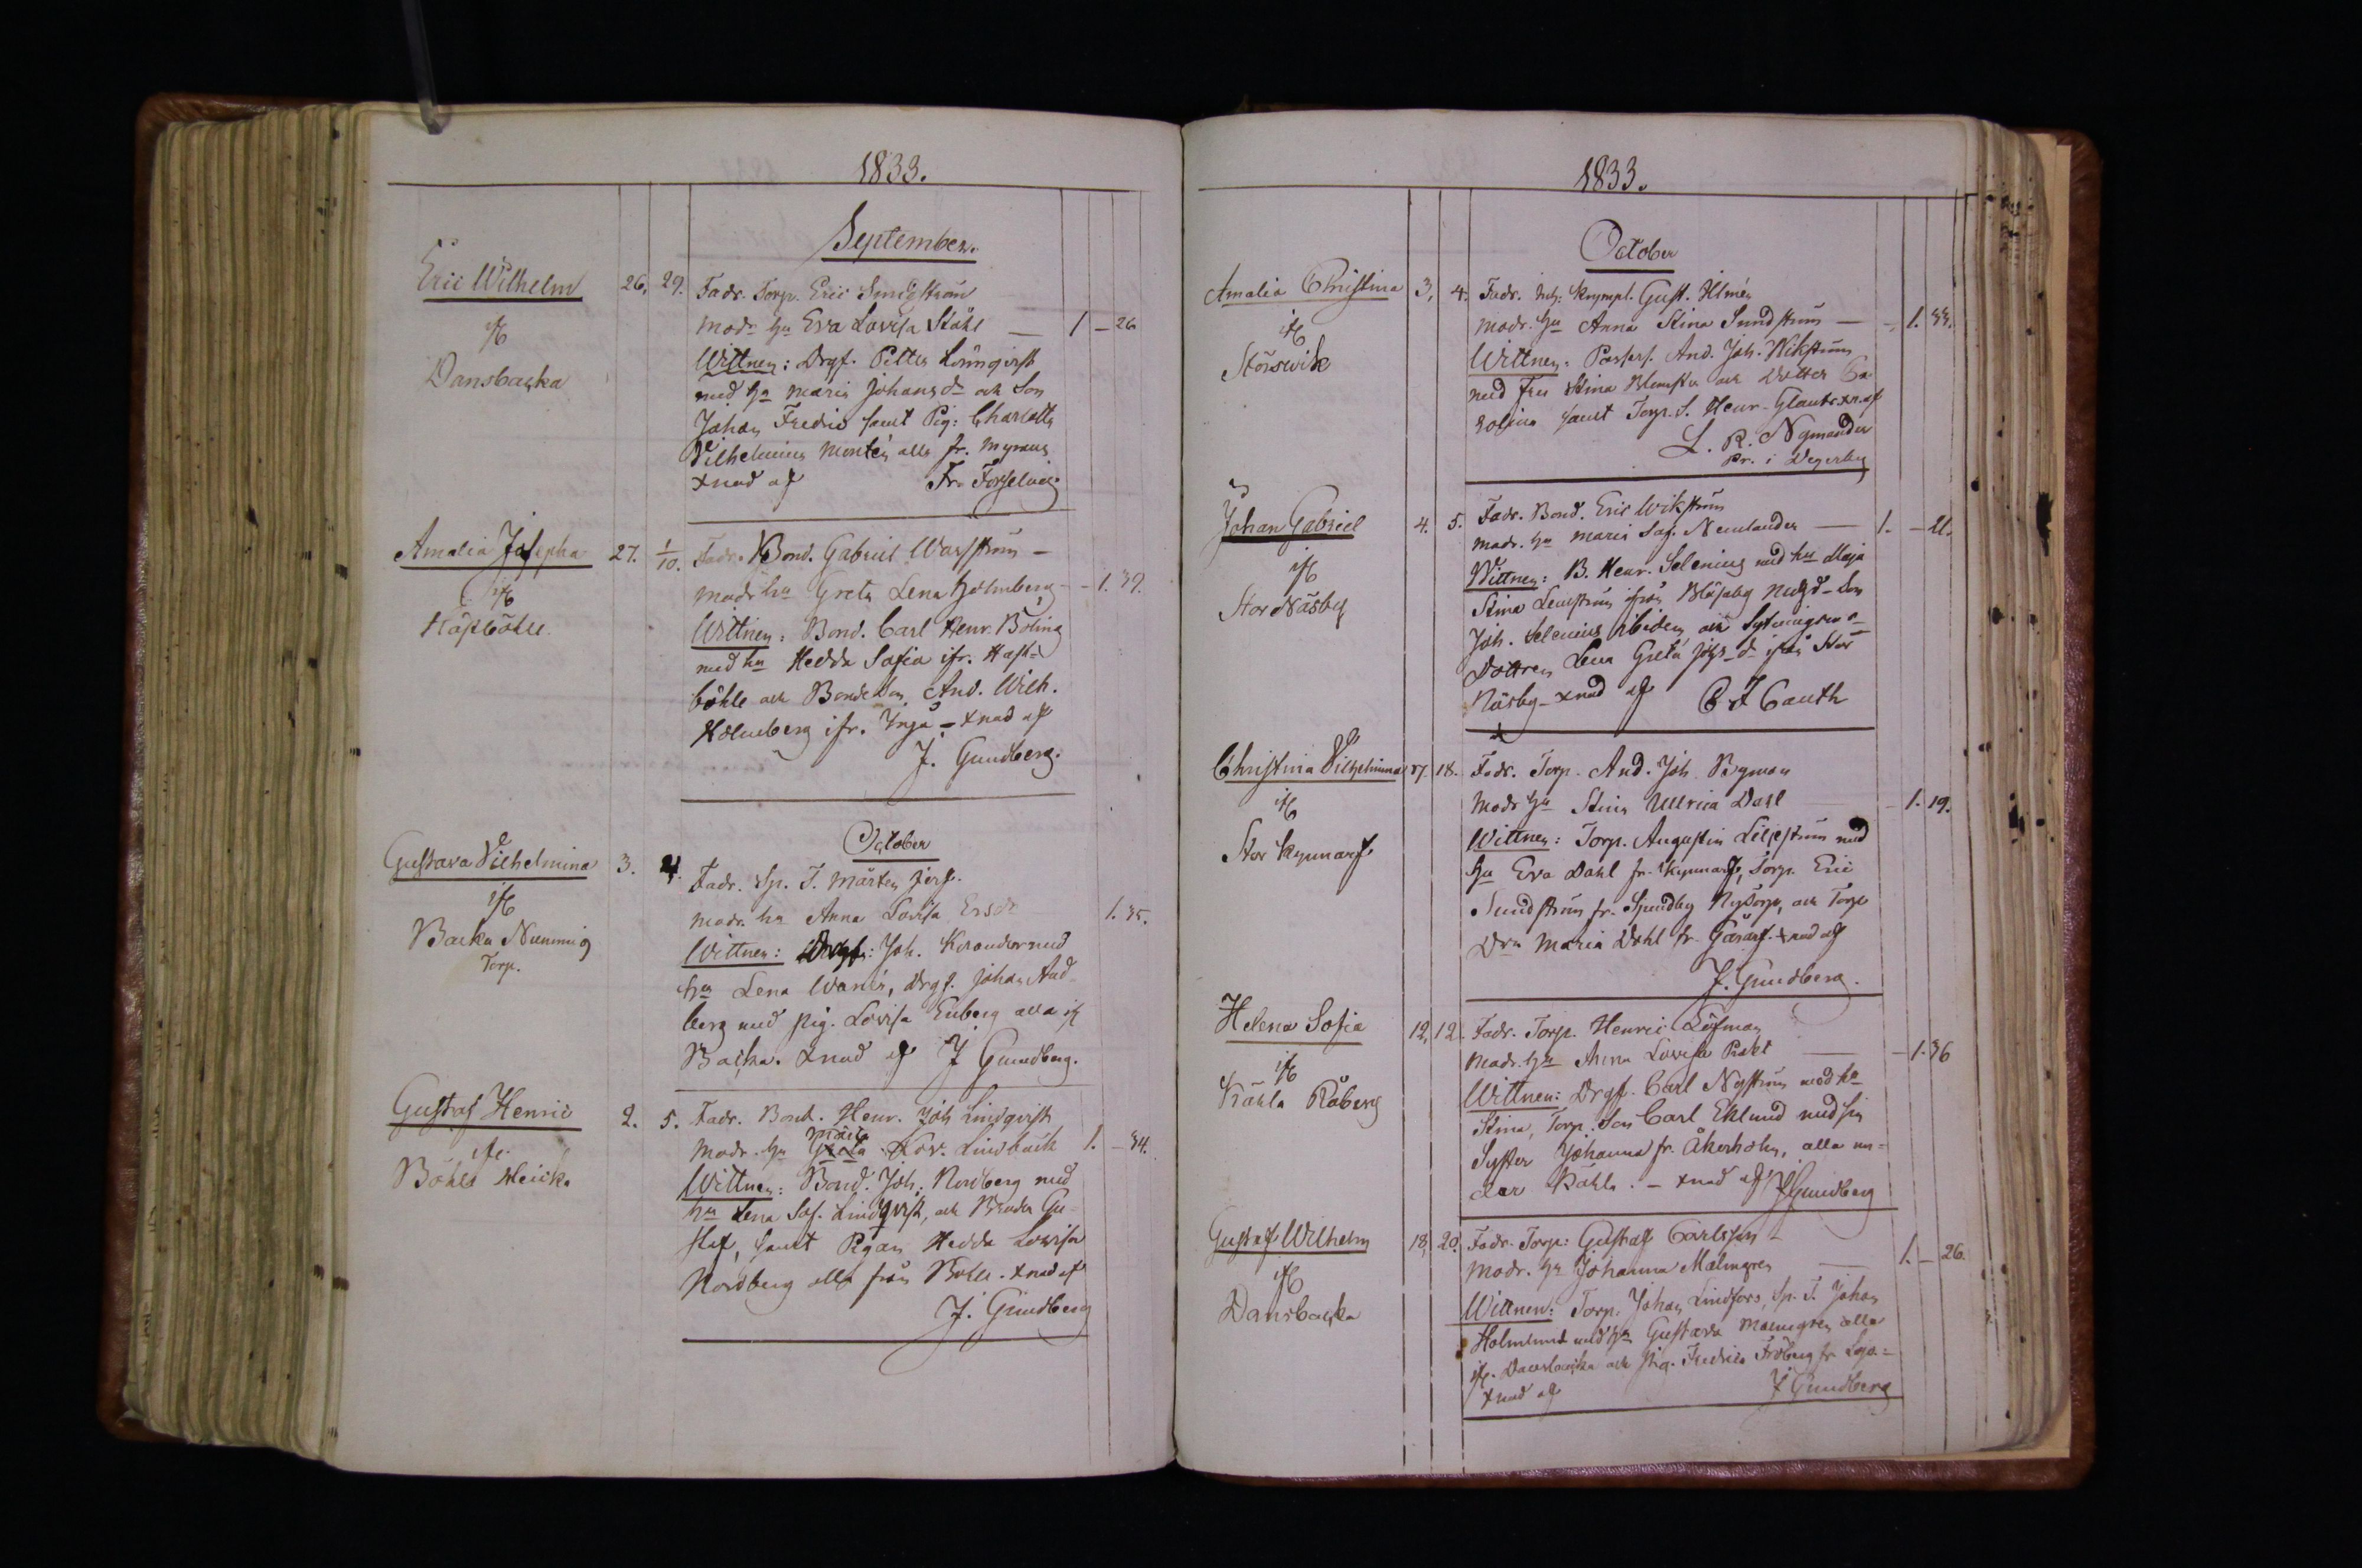 1833.
September.
Eric Wilhelm 26. 29. Fadr. Torp. Eric Sundström
Modr hu Eva Lovisa Ståhl — 1 – 26
ifr
Dansbacka
Wittnen: Drgf. Petter Lönnqvist
med hu Maria Johansdr och Son
Johan Fredric samt Pig: Charlotta
Vilhelmina Montén alla fr.
xnad af Fr. Forselius
Amalia Josepha 27. 1/10. Fadr. Bond. Gabriel Wasström –
Modr hu Greta Lena Holmberg – 1. 39.
ifr
Hästböhle
Wittnen: Bond. Carl Henr. Boling
med hu Hedda Sofia ifr. Häst=
böhle och Bonde Son And. Wilh.
Holmberg ifr. Ingå – xnad af
J. Gundberg.
October
Gustava Vilhelmina 3. 4. Fadr. Sp. T. Mårten
Modr. hu Anna Lovisa Ersdr 1. 35.
ifr
Backa Nummis
Torp.
Wittnen: Joh. med
hu Lena Wanér, Drgf. Johan And
berg med pig. Lovisa Enberg alla ifr
Backa. xnad af J Gundberg.
Gustaf Henric 2. 5. Fadr. Bond. Henr. Joh Lindqvist
Modr. hu Maria Lov. Lindbäck 1. – 34.
ifr.
Böhle
Wittnen: Bond. Joh. Nordberg med
hu Lena Sof. Lindqvist, och Broder Gu=
staf, samt Pigan Hedda Lovisa
Nordberg alla från Böhle. xnad af
J. Gundberg
1833.
October
Amalia Christina 3, 4. Fadr. Gust. Almén
Modr. hu Anna Stina Sundström — – 1. 33.
ifr
Störswik
Wittnen: And. Joh. Wikström
med Fru Stina och Dotter Ca
rolina samt Torp. S. Henr. xn. af
L. R. Nymander
Pr. i Degerby
Johan Gabriel 4. 5. Fadr. Bond. Eric Wikström
Modr. hu Maria Sof. Nemlander — 1. – 21.
ifr
Stor Näsby
Wittnen: B. Henr. Selenius med hu Maja
Stina ifrån
Joh. Selenius ibidem, och Sytnings
Dottren Lena Greta Johsdr ifrån Stor
Näsby – xnad af C J Cauth
Christina Vilhelmina 17. 18. Fadr. Torp. And. Joh. Nyman
Modr hu Stina Ulrica Dahl – 1. 19.
ifr
Stor Kynnarf
Wittnen: Torp. Augustin Liljeström med
hu Eva Dahl fr. Kynnarf, Torp. Eric
Sundström fr. Sjundby Nytorp, och Torp
Drn Maria Dahl fr. xnad af
J. Gundberg.
Helena Sofia 12, 12. Fadr. Torp. Henric Löfman
Modr. hu Anna Lovisa — – 1. 36
ifr
Kåhla Råberg
Wittnen: Drgf. Carl Nyström med hu
Stina, Torp. Son Carl Eklund med sin
Syster Johanna fr. Åkerholm, alla un=
der Kåhla. – xnad af J Gundberg
Gustaf Wilhelm 18, 20. Fadr. Torp: Gustaf Carlsson –
Modr. hu Johanna Malmgren — 1. – 26.
ifr
Dansbacka
Wittnen: Torp. Johan Lindfors, Sp. T. Johan
Holmlund med hu Gustava Malmgren alla
ifr. Dansbacka och pig. Fredrica Fröberg fr
xnad af J Gundberg